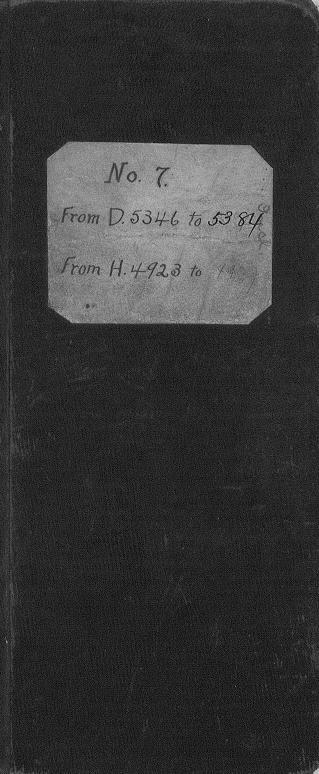 No. 7.
From D. 5346 to 5384
From H. 4923 to